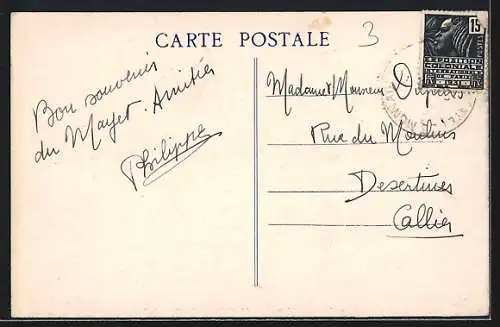 CARTE POSTALE
3
15
POSTES
EXPOSITION
COLONIALE
Bon souvenir
du Mayet. Amitiés
Philippe
Madame et Monsieur Dupuis
Rue du Moulins
Desertines
Allier